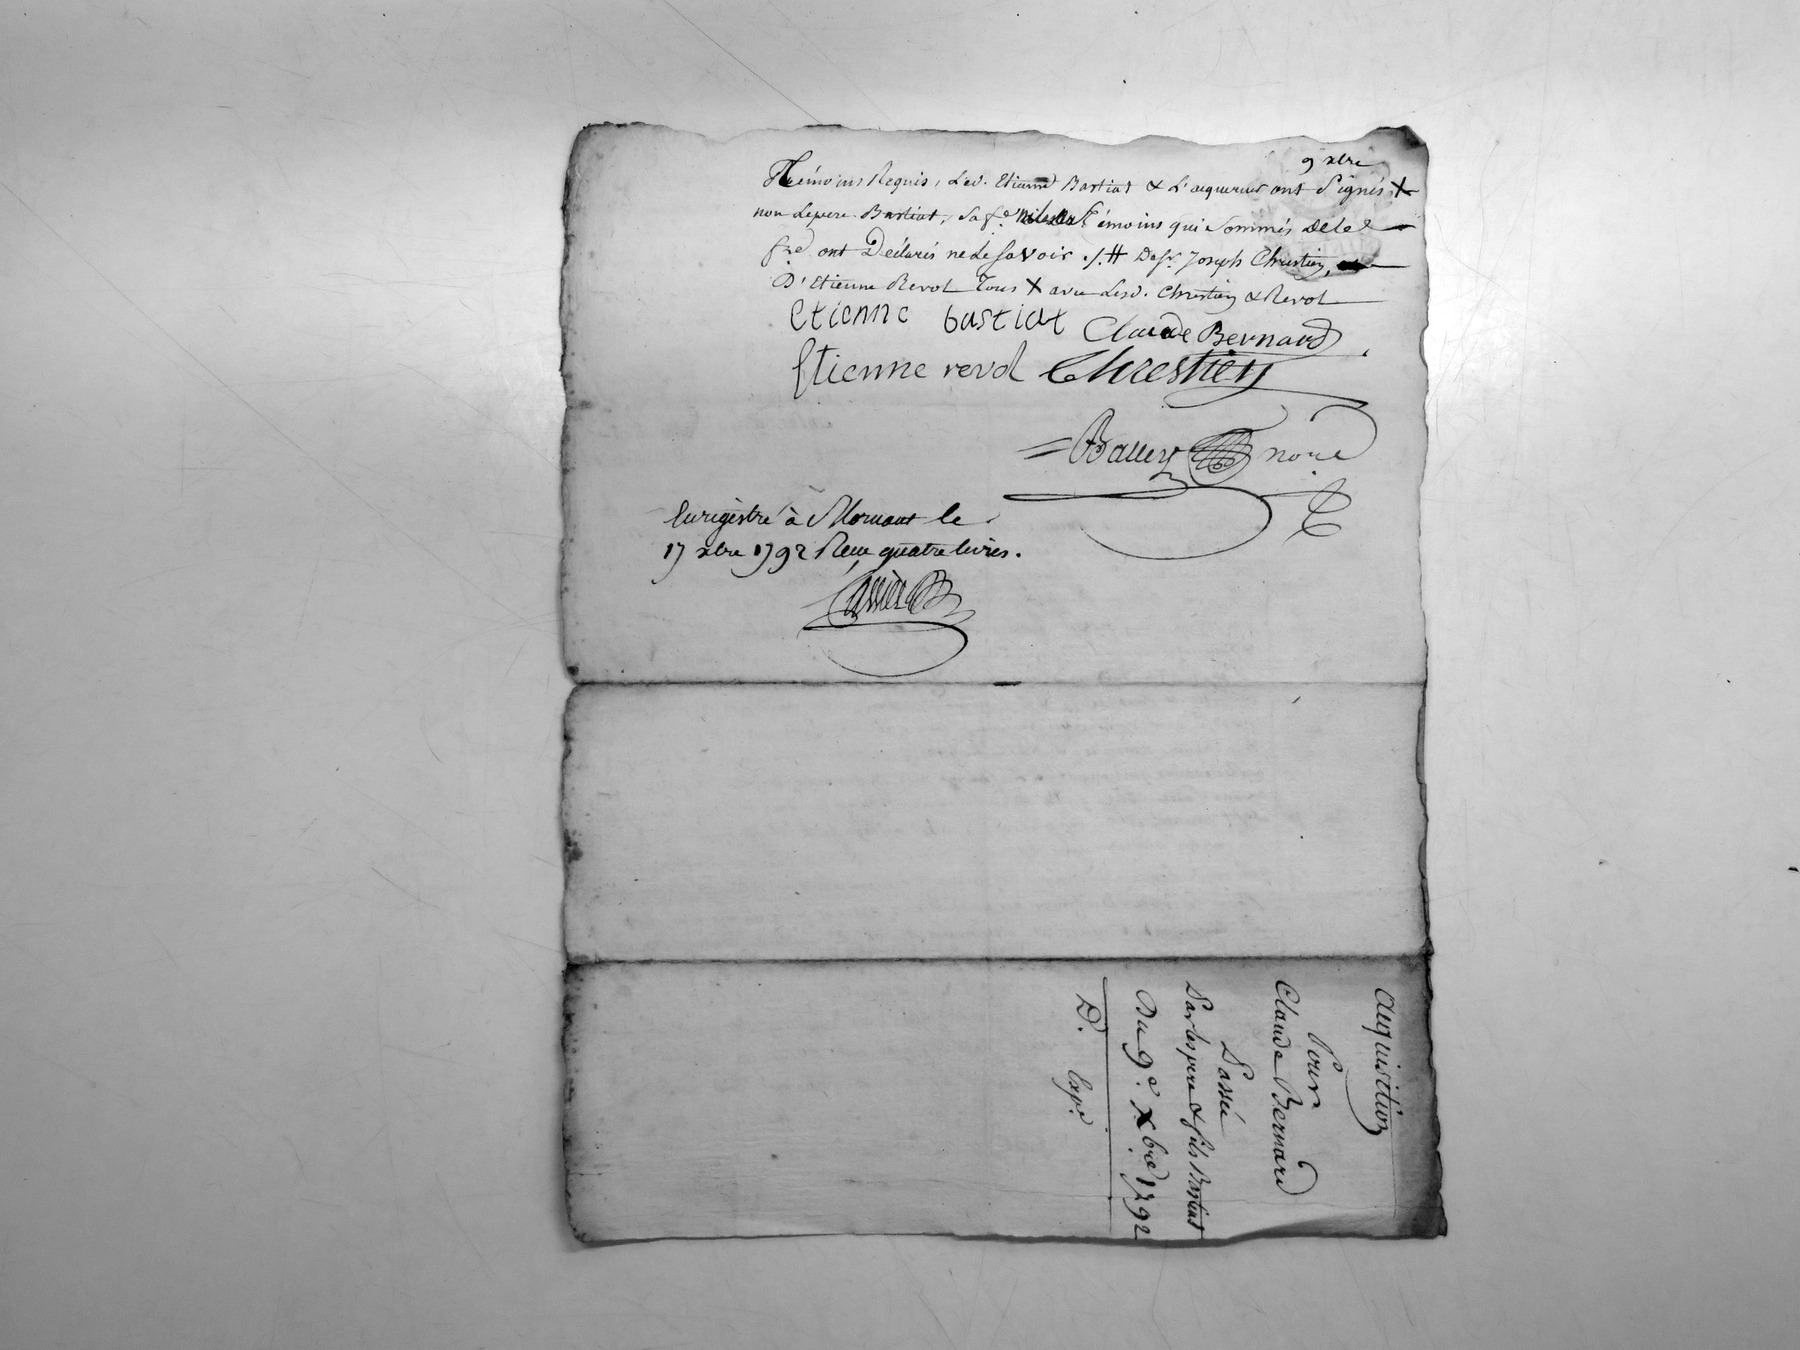 9 xbre
Témoins Requis, Led. Etienne Bastiat & L'aquereur ont Signés X
non Lepere Bastiat, Sa fe. ni les Témoins qui Sommés De le
fre ont Déclarés ne Le Savoir ./. # De Sr. Joseph Chrestien,
D'Etienne Revol Tous X avec Lesd. Chrestien & Revol
etienne bastiat Claude Bernard
Etienne revol Chrestien
= Balley nore
Enregistré à Mornant le
17 xbre 1792 Reçu quatre livres.
aquisition
Pour
Claude Bernard
Passée
Par les pere & fils Bastiat
Du 9e. Xbre 1792
D. Expe.